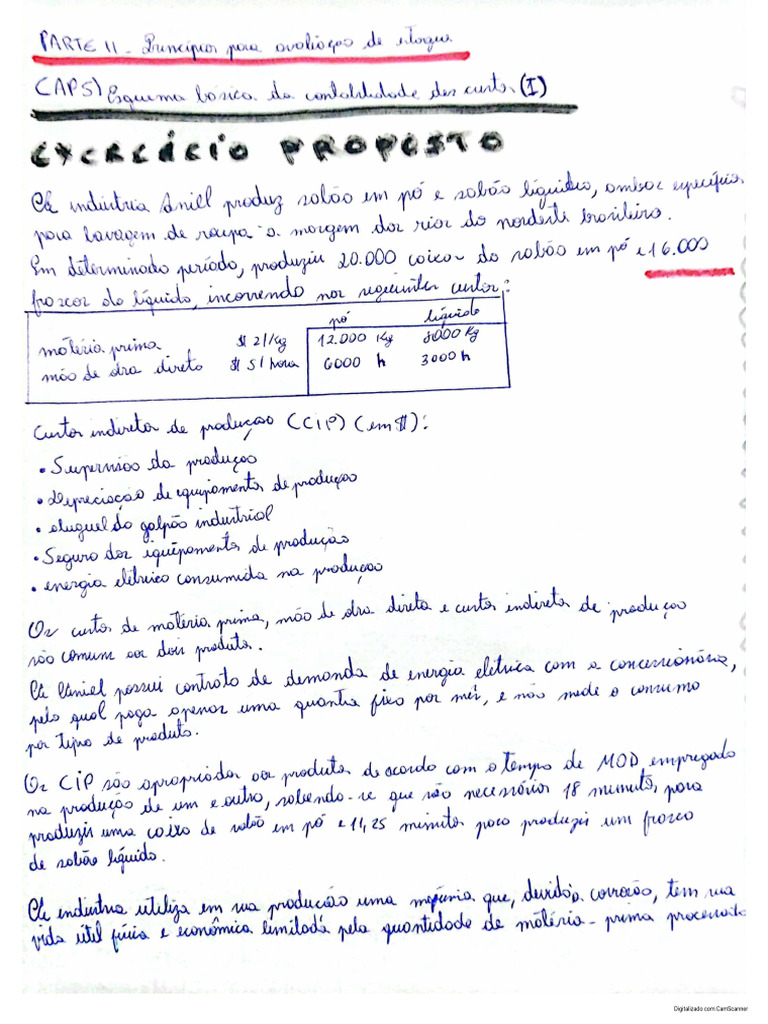 PARTE II - Princípios para avaliação de estoques
CAP5) Esquema básico da contabilidade dos custos (I)
EXERCÍCIO PROPOSTO
A indústria Aniel produz sabão em pó e sabão líquido, ambos específicos
para lavagem de roupa à margem dos rios do nordeste brasileiro.
Em determinado período, produziu 20.000 caixas do sabão em pó e 16.000
frascos do líquido, incorrendo nos seguintes custos:
pó líquido
matéria prima $ 2/Kg 12.000 Kg 8000 Kg
mão de obra direta $ 5/hora 6000 h 3000 h
Custos indiretos de produção (CIP) (em $):
• Supervisão da produção
• Depreciação de equipamentos de produção
• aluguel do galpão industrial
• Seguro dos equipamentos de produção
• energia elétrica consumida na produção
Os custos de matéria prima, mão de obra direta e custos indiretos de produção
são comuns aos dois produtos.
A Aniel possui contrato de demanda de energia elétrica com a concessionária,
pelo qual paga apenas uma quantia fixa por mês, e não mede o consumo
por tipo de produto.
Os CIP são apropriados aos produtos de acordo com o tempo de MOD empregado
na produção de um e outro, sabendo-se que são necessários 18 minutos para
produzir uma caixa de sabão em pó e 11,25 minutos para produzir um frasco
de sabão líquido.
A indústria utiliza em sua produção uma máquina que, devido à corrosão, tem sua
vida útil física e econômica limitada pela quantidade de matéria-prima processada
Digitalizado com CamScanner